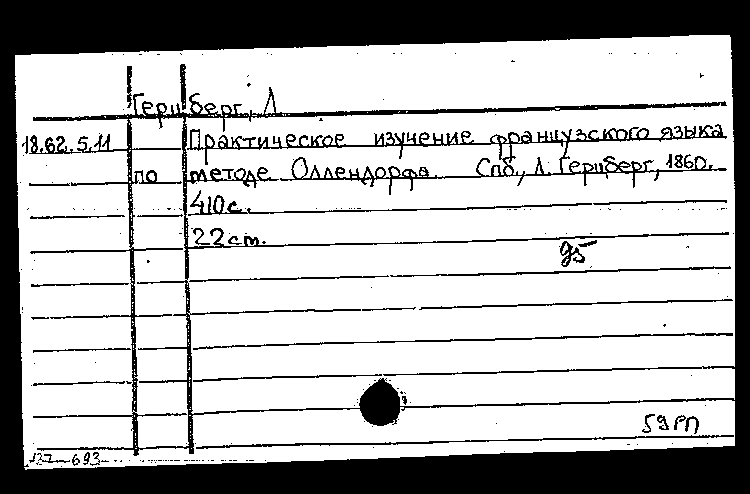 Герцберг, Л.
18.62.5.11 Практическое изучение французского языка
по методе Оллендорфа. Спб., Л. Герцберг, 1860.
410 с.
22 cm.
95
59 РП
-693